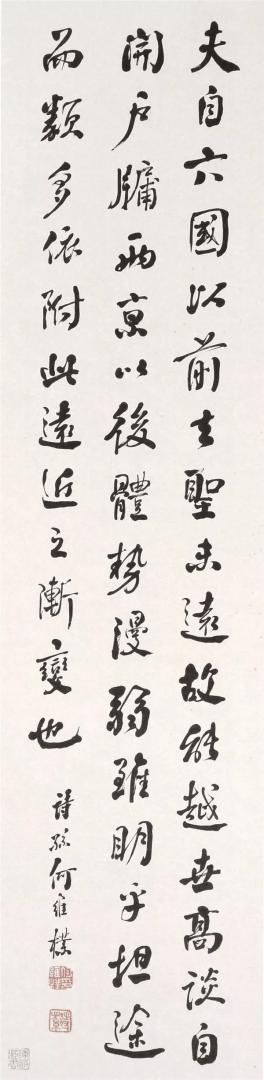 夫自六國以前去聖未遠故能越世高談自
開戶牖兩京以後體勢漫弱雖明乎坦途
而類多依附此遠近之漸變也
詩孫何維樸